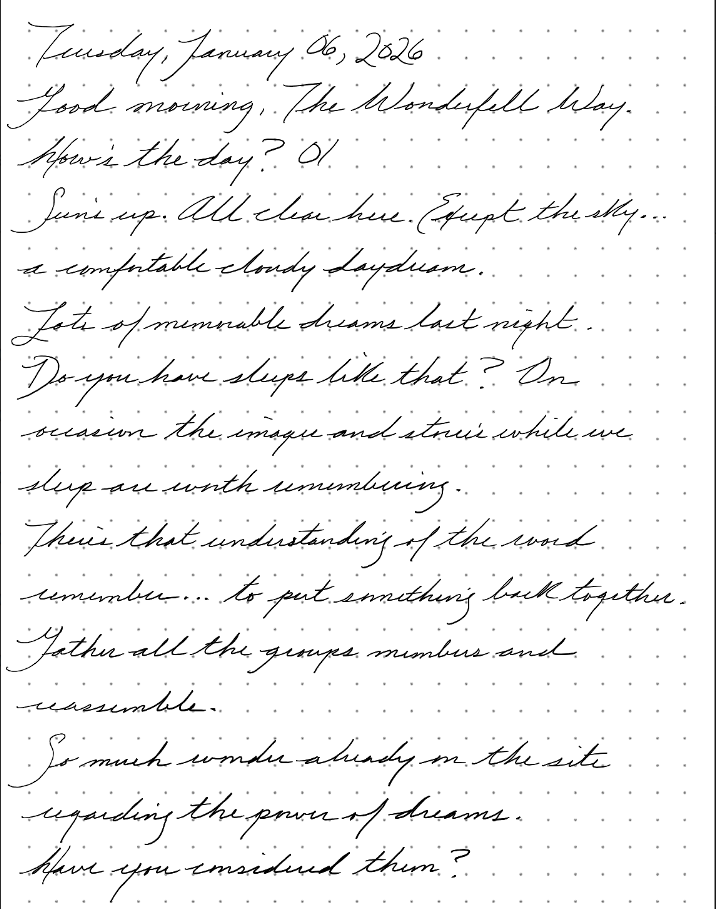 Tuesday, January 06, 2026
Good morning, The Wonderfell Way.
How's the day? 01
Sun's up. All clear here. Except the sky...
a comfortable cloudy daydream.
Lots of memorable dreams last night.
Do you have sleeps like that? On
occasion the images and stories while we
sleep are worth remembering.
There's that understanding of the word
remember... to put something back together.
Gather all the groups members and
reassemble.
So much wonder already on the site
regarding the power of dreams.
Have you considered them?